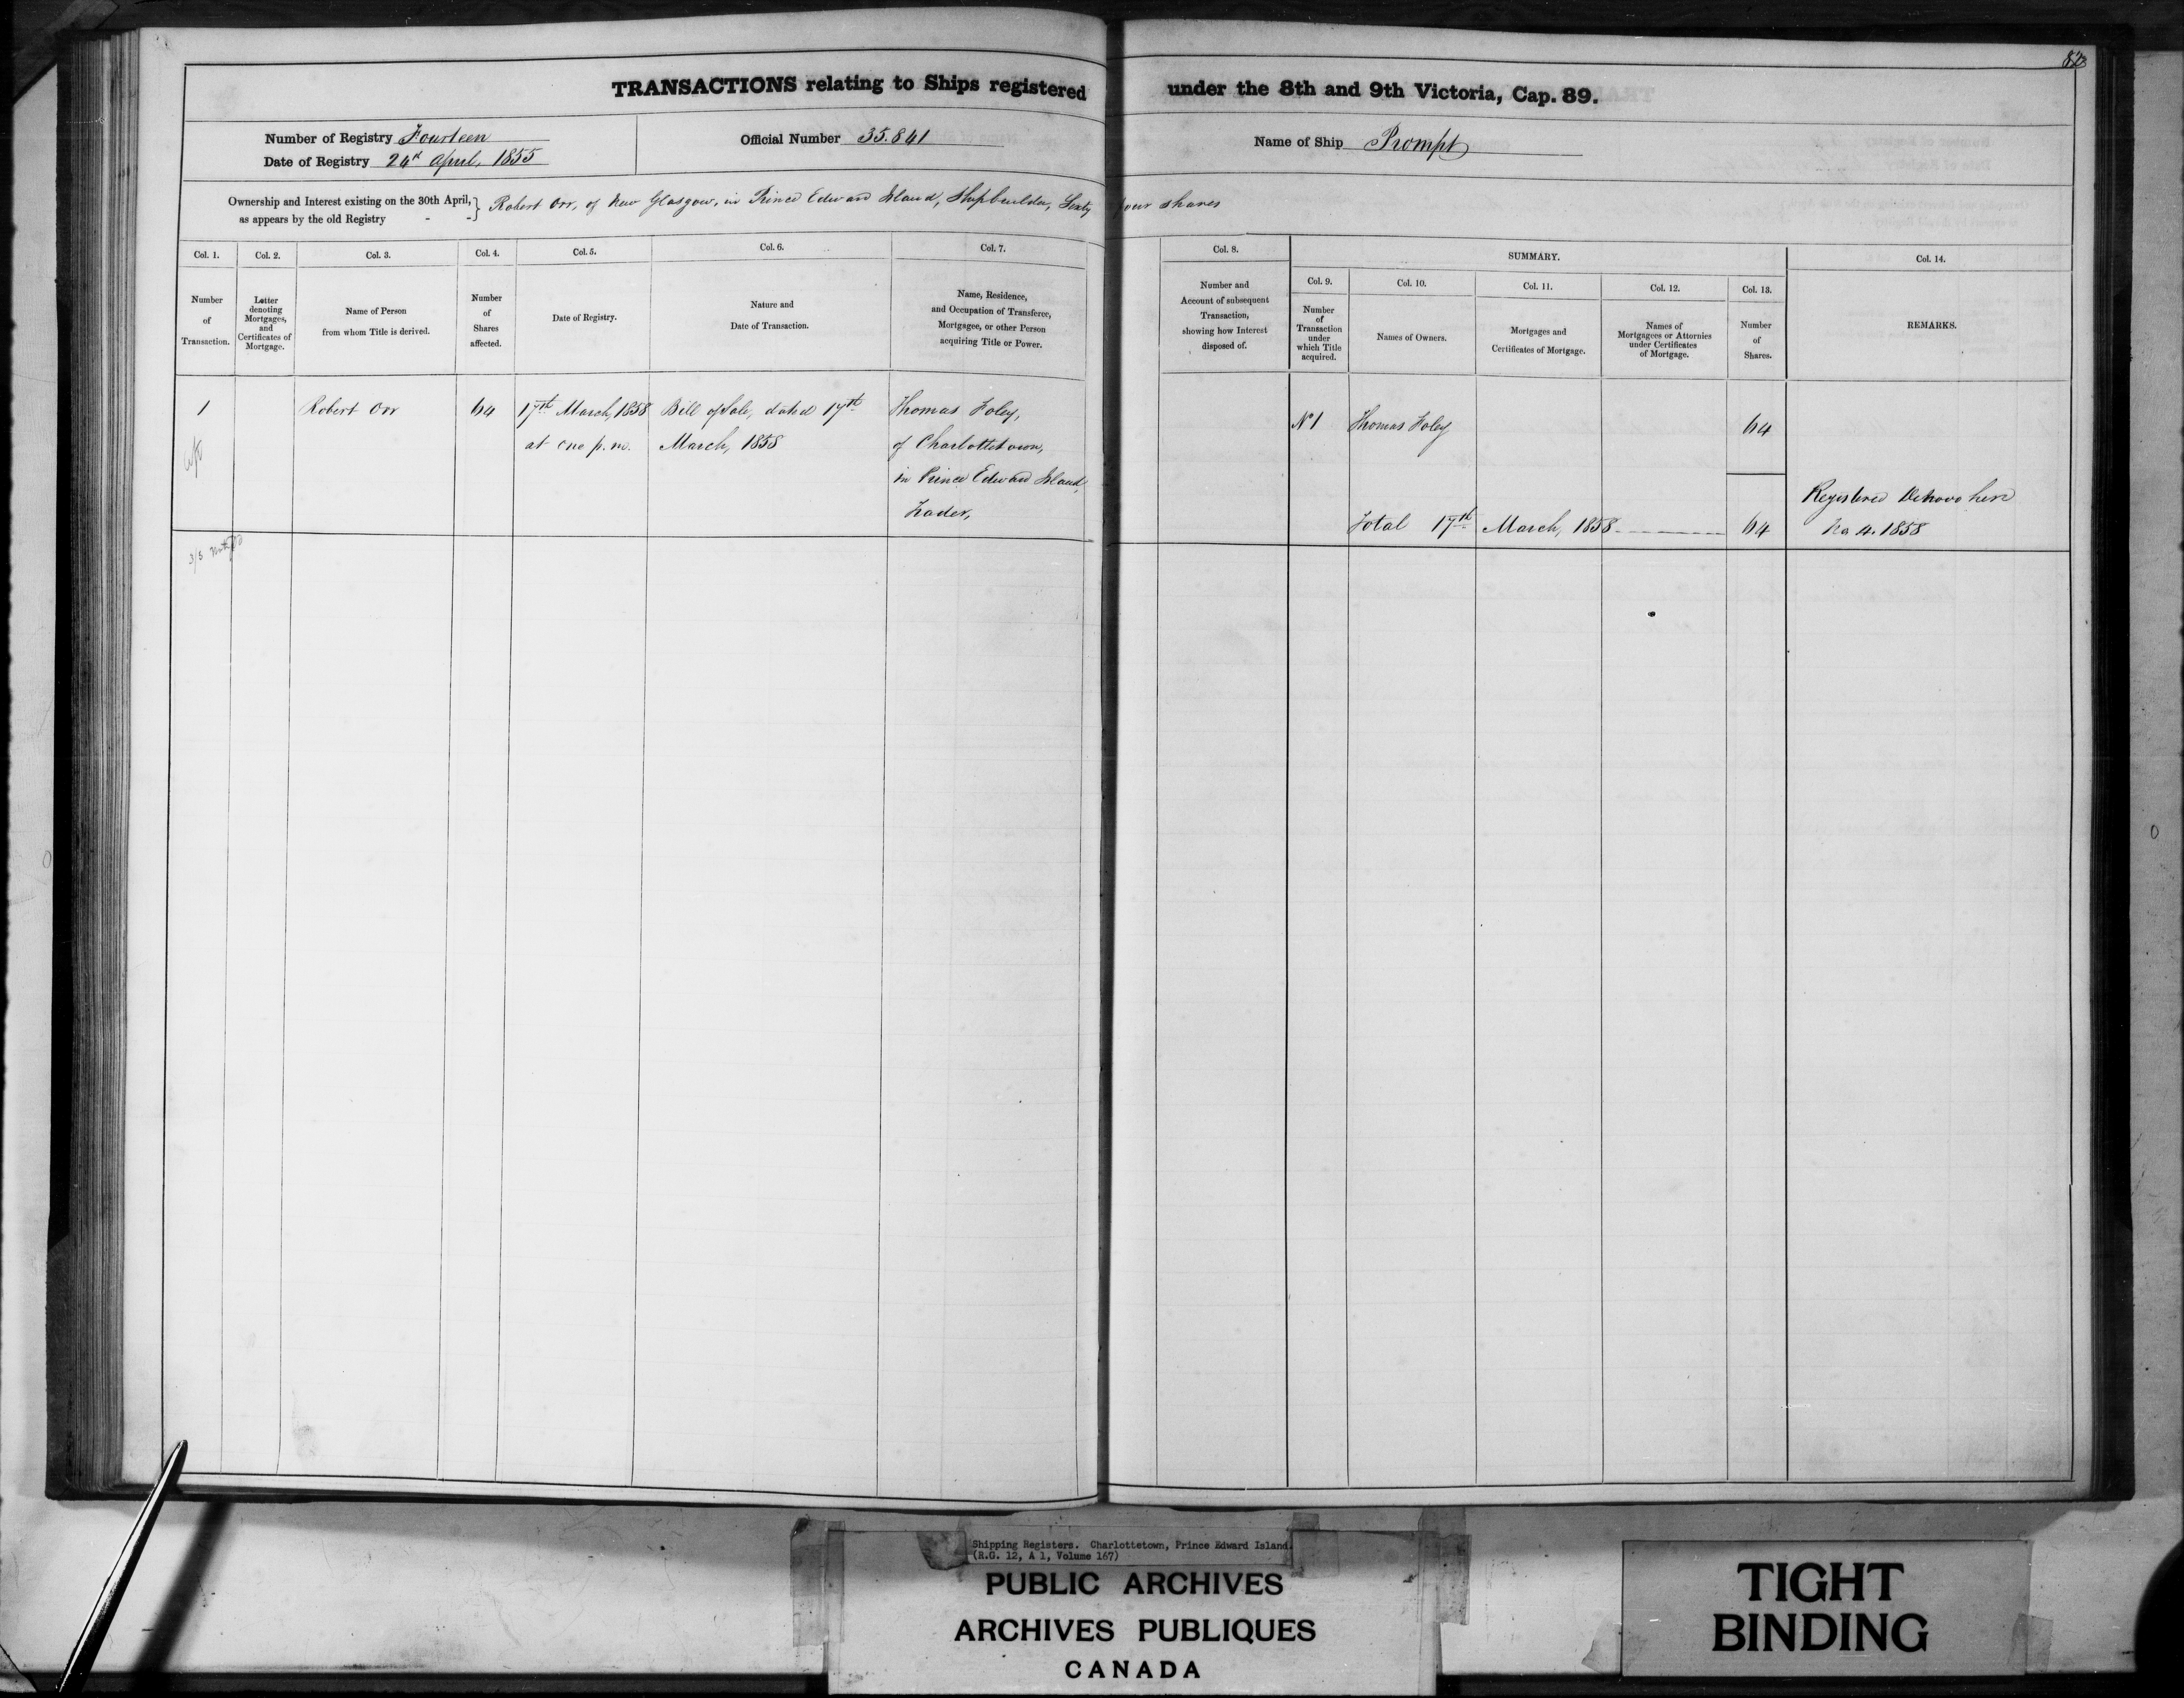 TRANSACTIONS relating to Ships registered under the 8th and 9th Victoria, Cap. 89.
Number of Registry Fourteen
Date of Registry 24th April, 1855
Official Number 35.841
Name of Ship Prompt
Ownership and Interest existing on the 30th April,
as appears by the old Registry - -
} Robert Orr, of New Glasgow, in Prince Edward Island, Shipbuilder, Sixty four shares
Col. 1.
Number
of
Transaction.
Col. 2.
Letter
denoting
Mortgages,
and
Certificates of
Mortgage.
Col. 3.
Name of Person
from whom Title is derived.
Col. 4.
Number
of
Shares
affected.
Col. 5.
Date of Registry.
Col. 6.
Nature and
Date of Transaction.
Col. 7.
Name, Residence,
and Occupation of Transferee,
Mortgagee, or other Person
acquiring Title or Power.
Col. 8.
Number and
Account of subsequent
Transaction,
showing how Interest
disposed of.
SUMMARY.
Col. 9.
Number
of
Transaction
under
which Title
acquired.
Col. 10.
Names of Owners.
Col. 11.
Mortgages and
Certificates of Mortgage.
Col. 12.
Names of
Mortgagees or Attornies
under Certificates
of Mortgage.
Col. 13.
Number
of
Shares.
Col. 14.
REMARKS.
1
Robert Orr
64
17th March, 1858
at one p.m.
Bill of Sale, dated 17th
March, 1858
Thomas Foley,
of Charlottetown,
in Prince Edward Island,
Trader,
No 1
Thomas Foley
64
Total 17th March, 1858 64
Registered Denovo here
No 4. 1858
Shipping Registers. Charlottetown, Prince Edward Island.
(R.G. 12, A 1, Volume 167)
PUBLIC ARCHIVES
ARCHIVES PUBLIQUES
CANADA
TIGHT
BINDING